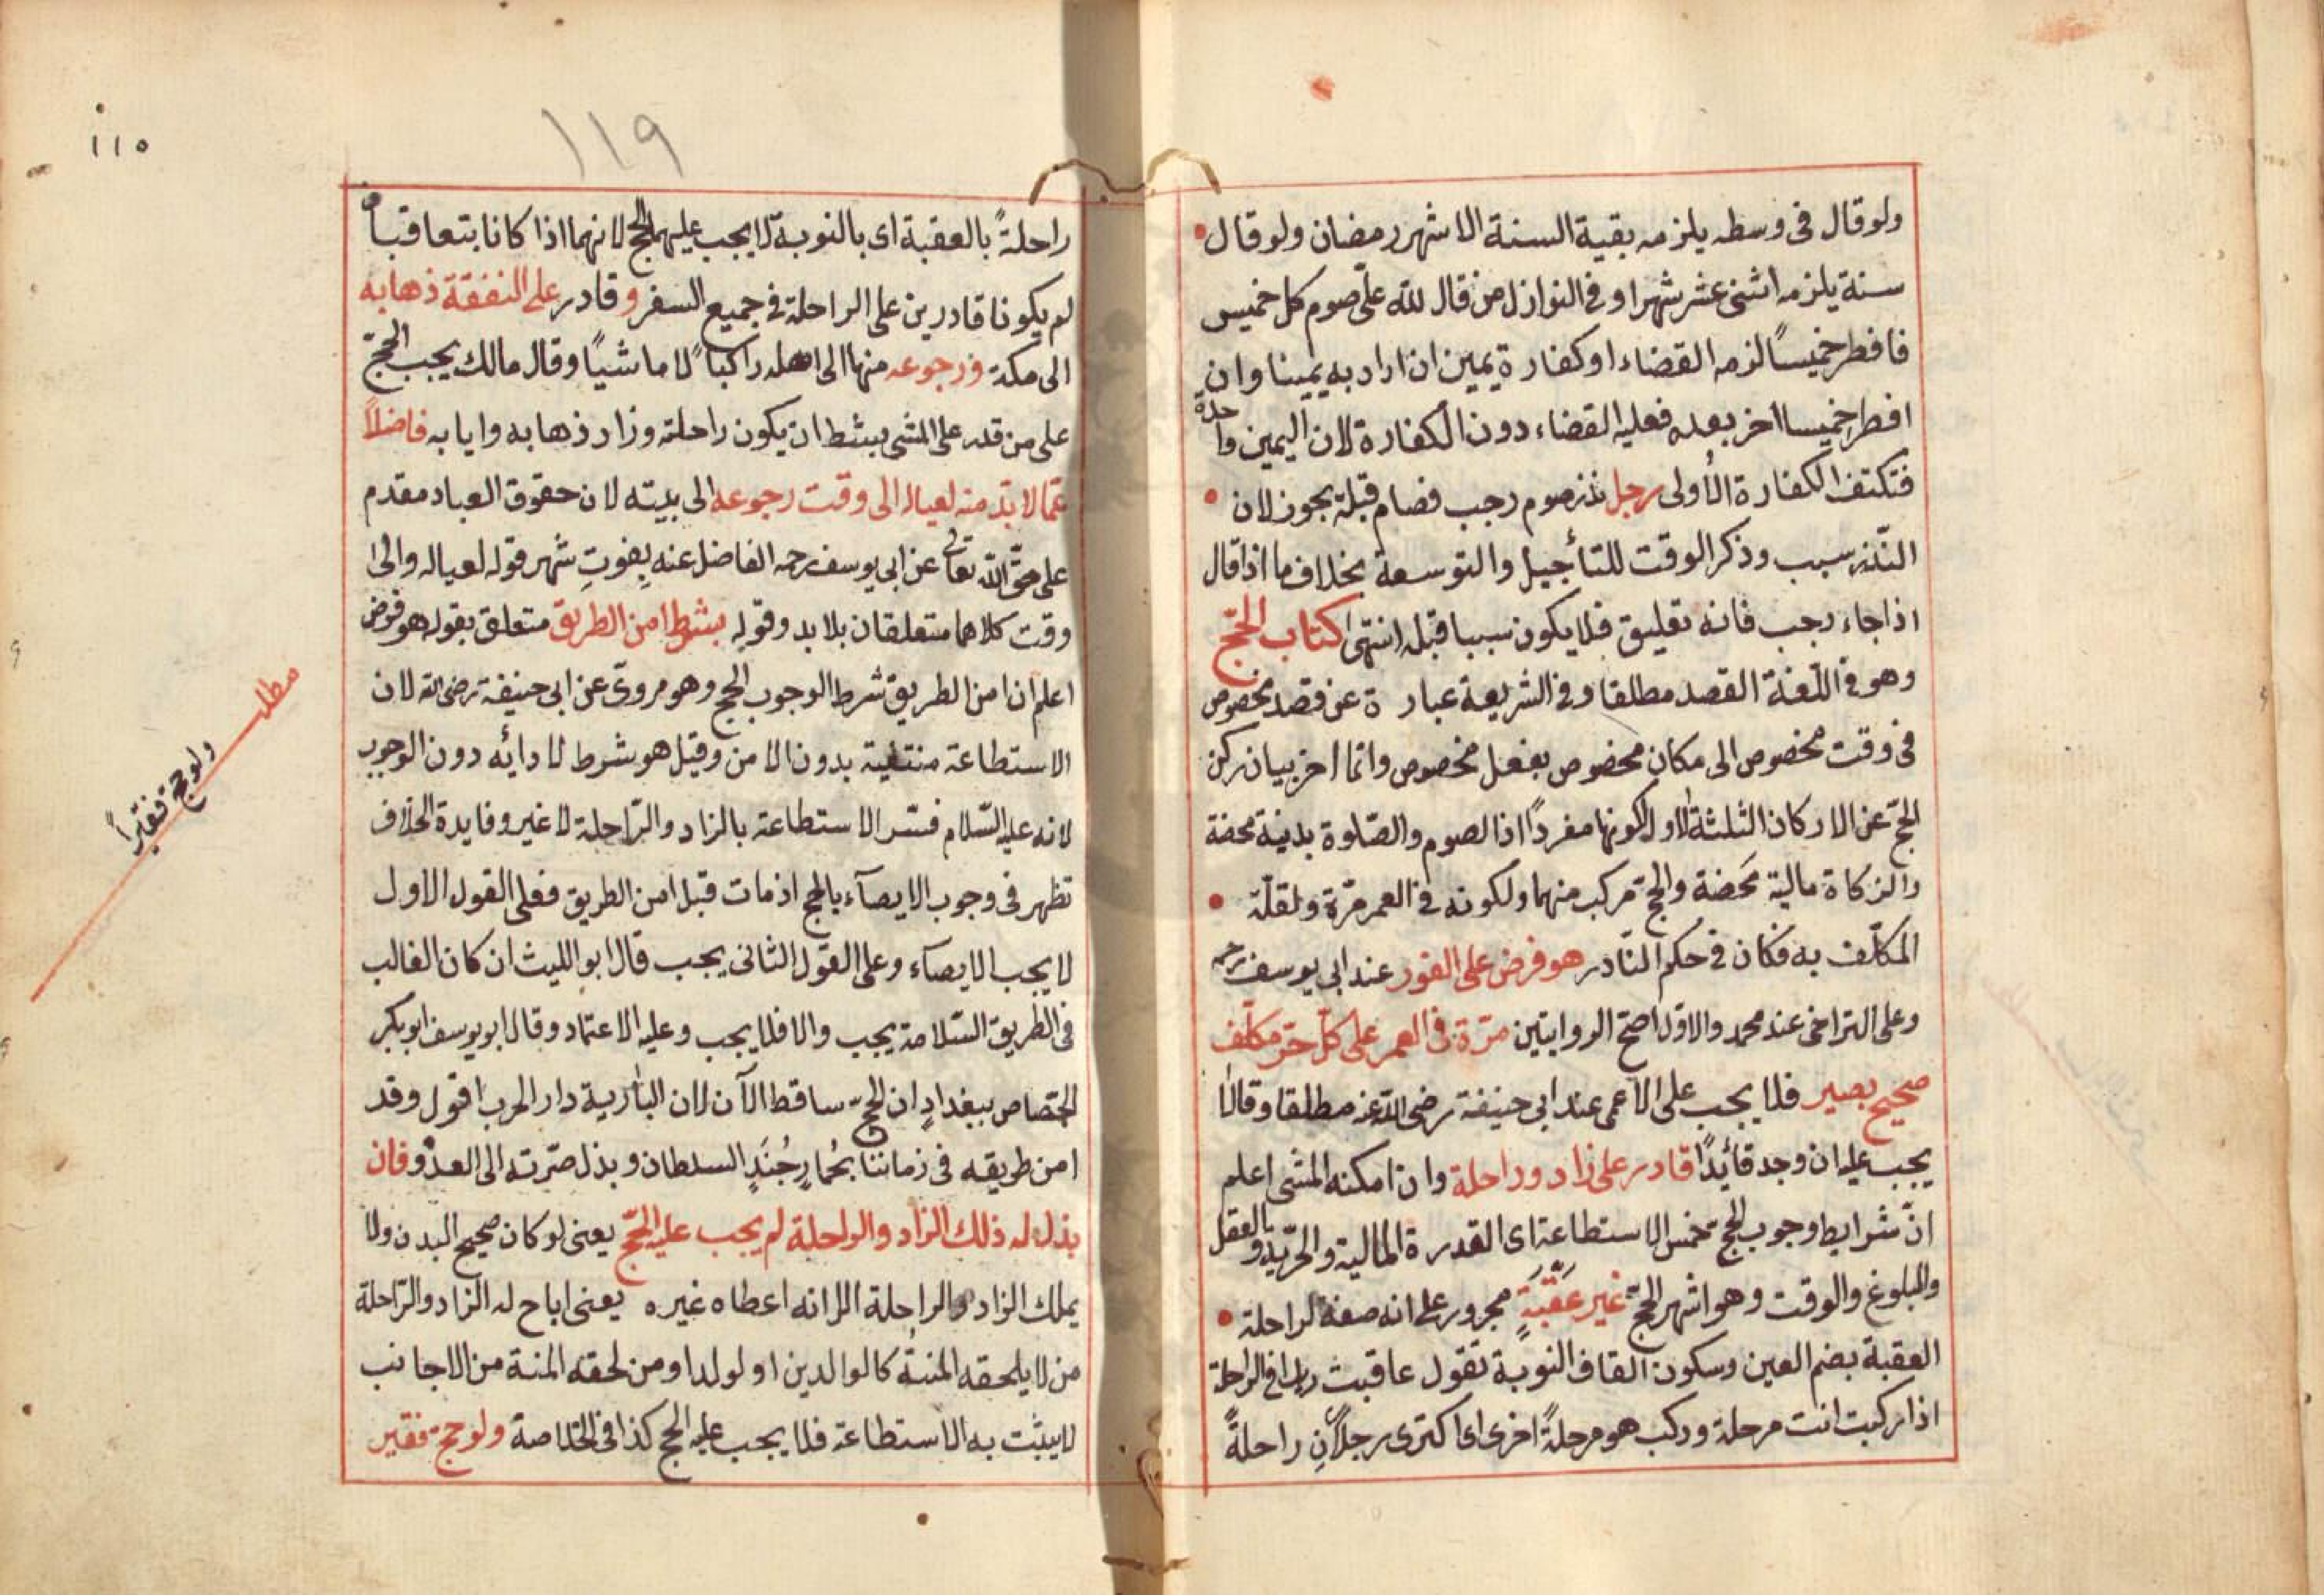 ولو قال فى وسطه يلزمه بقية السنة الا شهر رمضان ولو قال
سنة يلزمه اثنى عشر شهرا وفى النوازل من قال لله علىّ صوم كل خميس
فافطر خميسًا لزمه القضاء او كفارة يمين ان اراد به يمينا وان
افطر خميسا اخر بعده فعليه القضاء دون الكفارة لان اليمين واحدة
فتكتفى الكفارة الأولى رجل نذر صوم رجب فصام قبله يجوز لان
النّذر سبب وذكر الوقت للتأجيل والتوسعة بخلاف ما اذا قال
اذا جاء رجب فانه تعليق فلا يكون سببا قبله انتهى كتاب الحجّ
وهو فى اللّغة القصد مطلقا وفى الشريعة عبارة عن قصد مخصوص
فى وقت مخصوص الى مكان مخصوص بفعل مخصوص وانما اخر بيان ركن
الحجّ عن الاركان الثلثة الاول لكونها مفردًا اذ الصوم والصّلوة بدنية محضة
والزكاة مالية مَحَضة والحج مركب منهما ولكونه فى العمر مرّة ولقلّة
المكلّف به فكان فى حكم النّادر هو فرض على الفور عند ابى يوسف رحمه
وعلى التراخى عند محمد والاول اصحّ الروايتين مرّة فى العمر على كلّ حرّ مكلّف
صحيح بصير فلا يجب على الاعمى عند ابى حنيفة رضى الله عنه مطلقا وقالا
يجب عليه ان وجد قائدًا قادر على زاد وراحلة وان امكنه المشى اعلم
انّ شرايط وجوب الحج خمس الاستطاعة اى القدرة المالية والحرّية والعقل
والبلوغ والوقت وهو اشهر الحجّ غير عَقَبَةٍ مجرور على انه صفة لراحلة
العقبة بضم العين وسكون القاف النوبة تقول عاقبت زيدا فى الراحلة
اذا ركبت انت مرحلة وركب هو مرحلةً اخرى اى اكترى رجلانِ راحلةً
١١٩
١١٥
راحلةً بالعقبة اى بالنوبة لا يجب عليهما الحج لانهما اذا كانا يتعاقبان
لم يكونا قادرين على الراحلة فى جميع السفر وقادر على النفقة ذهابه
الى مكة ورجوعه منها الى اهله راكبًا لا ماشيًا وقال مالك يجب الحجّ
على من قدر على المشى بشط ان يكون راحلته وزاد ذهابه وايابه فاضلاً
عمّا لا بدّ منه لعياله الى وقت رجوعه الى بيته لان حقوق العباد مقدم
على حقّ الله تعالى عن ابى يوسف رحمه الفاضل عنه بِقوتِ شهر قوله لعياله والى
وقت كلاهما متعلقان بلا بد وقوله بشرط امن الطريق متعلق بقوله هو فرض
اعلم ان امن الطريق شرط الوجوب الحج وهو مروىّ عن ابى حنيفة رضى الله لان
الاستطاعة منتفية بدون الامن وقيل هو شرط لادائه دون الوجوب
لانه عليه السّلام فسّر الاستطاعة بالزاد والرّاحلة لا غير وفايدة الخلاف
تظهر فى وجوب الايصآء بالحج اذ مات قبل امن الطريق فعلى القول الاول
لا يجب الايصآء وعلى القول الثانى يجب قال ابو الليث ان كان الغالب
فى الطريق السّلامة يجب والا فلا يجب وعليه الاعتماد وقال ابو يوسف ابو بكر
الجصاص ببغداد ان الحجّ ساقط الآن لان البادية دار الحرب اقول وقد
امن طريقه فى زماننا جُنَدِ السلطان وبذل صرّته الى العدوّ فان
بذل له ذلك الزاد والراحلة لم يجب عليه الحجّ يعنى لو كان صحيح البدن ولا
يملك الزاد والراحلة الا انه اعطاه غيره يعنى اباح له الزاد والرّاحلة
من لا يلحقه المنة كالوالدين او لولدا ومن لحقه المنة من الاجانب
لا يثبت به الاستطاعة فلا يجب عليه الحج كذا فى الخلاصة ولو حجّ فقير
مطلب
ولو حج فقيراً